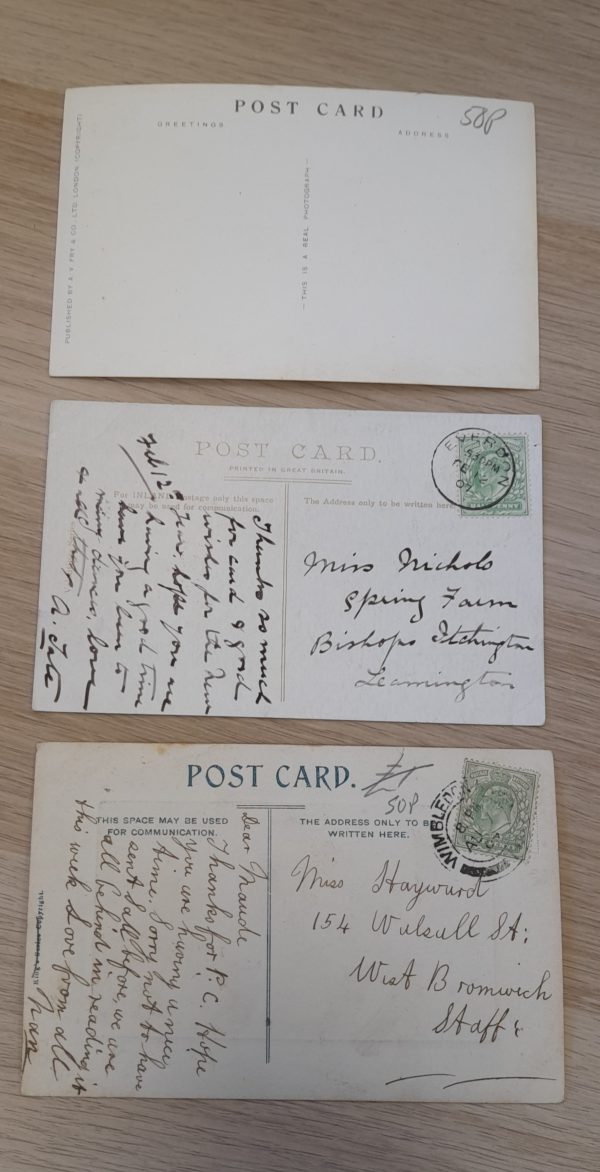 POST CARD
50P
GREETINGS
ADDRESS
PUBLISHED BY A. V. FRY & CO., LTD. LONDON (COPYRIGHT)
— THIS IS A REAL PHOTOGRAPH —
POST CARD.
PRINTED IN GREAT BRITAIN.
For INLAND Postage only this space
may be used for communication.
The Address only to be written here.
EVERDON
Feb 12th
Thanks so much
for card & good
wishes for the New
Year, hope you are
having a good time
have you been to
many dances, love
to all
A. Tate
Miss Nichols
Spring Farm
Bishops Itchington
Leamington
POST CARD.
£1
50P
THIS SPACE MAY BE USED
FOR COMMUNICATION.
THE ADDRESS ONLY TO BE
WRITTEN HERE.
WIMBLEDON
Copyright.
Dear Maude
Thanks for P.C. Hope
you are having a nice
time. Sorry not to have
sent P.C. before, we are
all behind in reading it
this week Love from all
Nan
Miss Hayward
154 Walsall St:
West Bromwich
Staffs